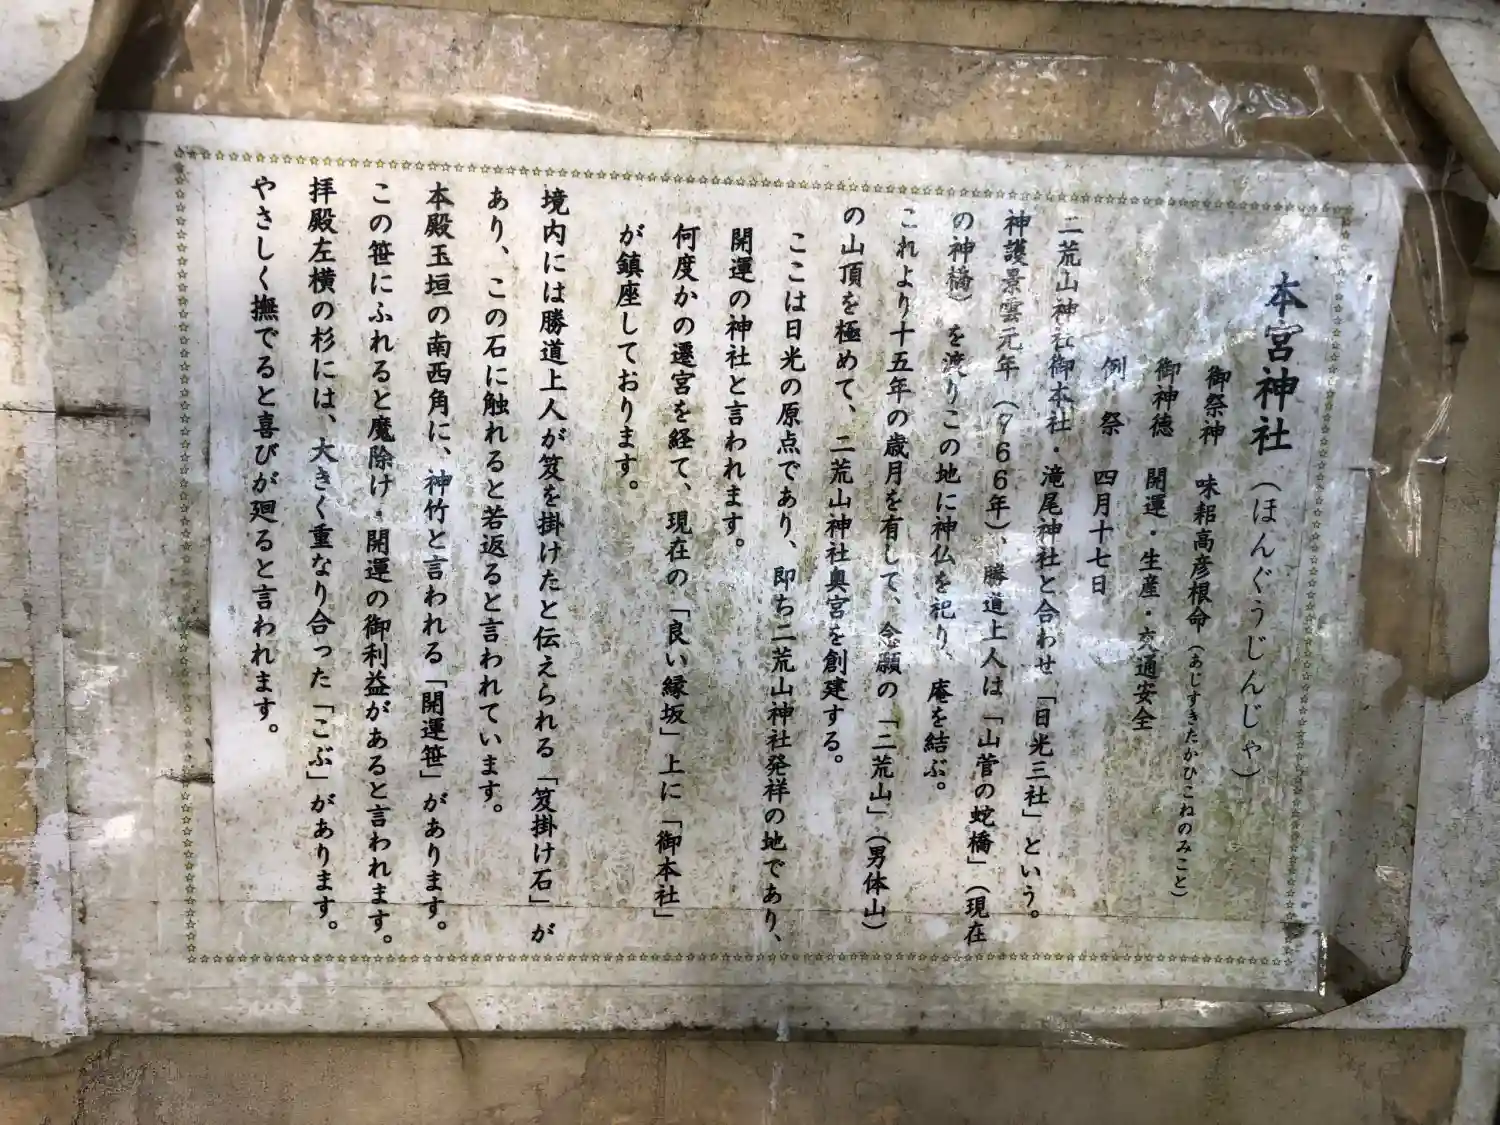 本宮神社（ほんぐうじんじゃ）
御祭神　味耜高彦根命（あじすきたかひこねのみこと）
御神徳　開運・生産・交通安全
例　祭　四月十七日
二荒山神社御本社・滝尾神社と合わせ「日光三社」という。
神護景雲元年（７６６年）、勝道上人は「山菅の蛇橋」（現在
の神橋）を渡りこの地に神仏を祀り、庵を結ぶ。
これより十五年の歳月を有して、念願の「二荒山」（男体山）
の山頂を極めて、二荒山神社奥宮を創建する。
ここは日光の原点であり、即ち二荒山神社発祥の地であり、
開運の神社と言われます。
何度かの遷宮を経て、現在の「良い縁坂」上に「御本社」
が鎮座しております。
境内には勝道上人が笈を掛けたと伝えられる「笈掛け石」が
あり、この石に触れると若返ると言われています。
本殿玉垣の南西角に、神竹と言われる「開運笹」があります。
この笹にふれると魔除け・開運の御利益があると言われます。
拝殿左横の杉には、大きく重なり合った「こぶ」があります。
やさしく撫でると喜びが廻ると言われます。